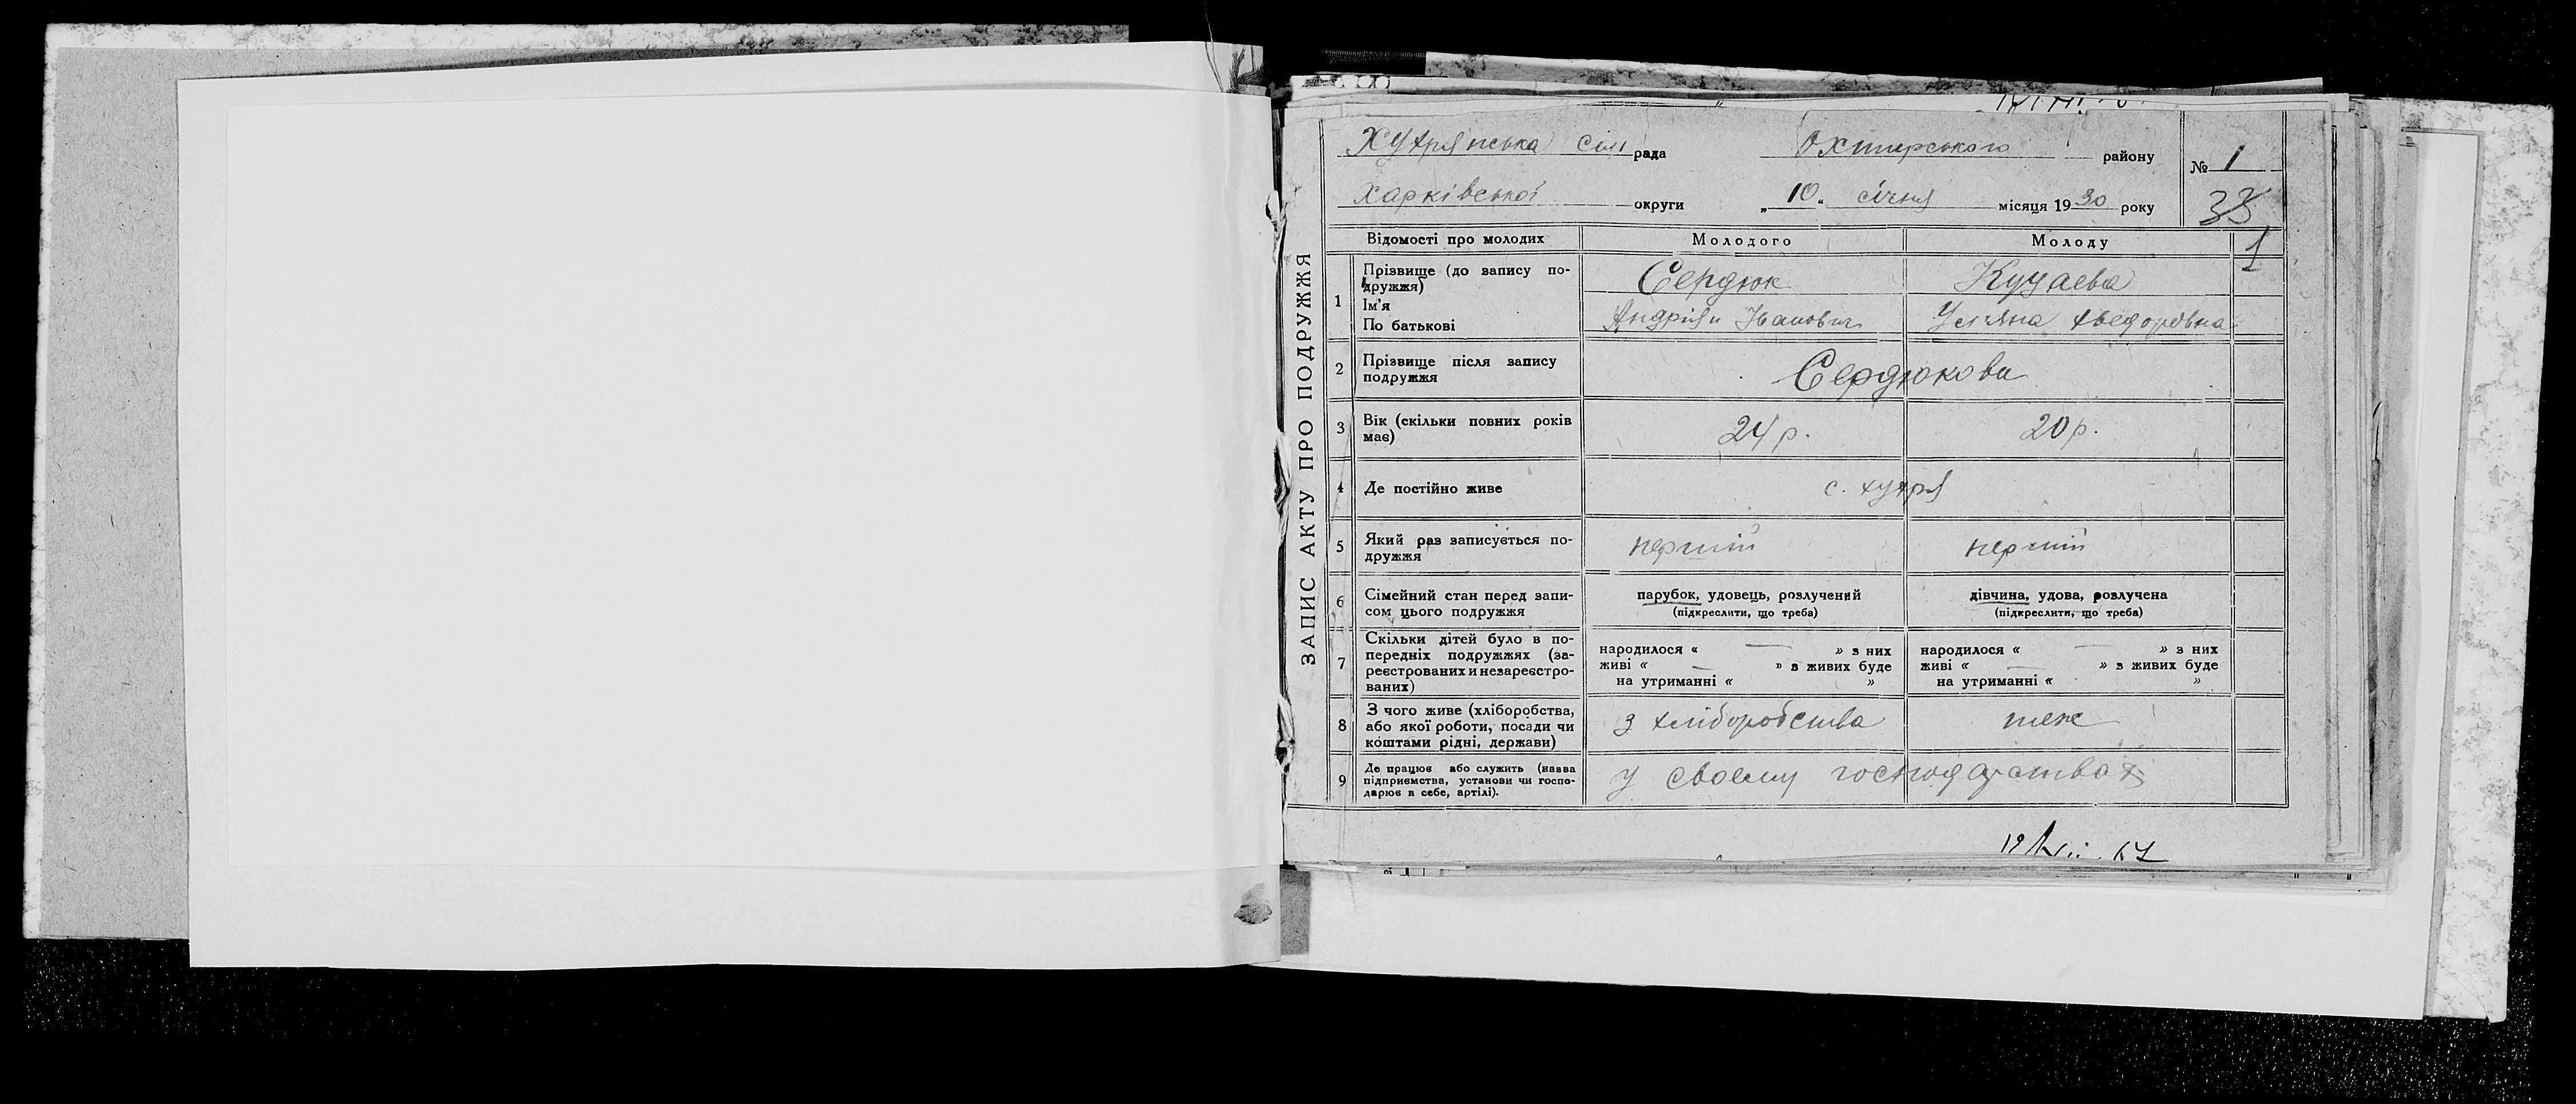 Хутрянська сіль рада Охтирського району № 1
Харківської округи „10“ січня місяця 1930 року 33
ЗАПИС АКТУ ПРО ПОДРУЖЖЯ
Відомості про молодих Молодого Молоду 1
1 Прізвище (до запису по-
дружжя) Сердюк Куцаева
Ім'я
По батькові Андріян Іванович Уляна Хведоровна
2 Прізвище після запису
подружжя Сердюкови
3 Вік (скільки повних років
має) 24 р. 20 р.
4 Де постійно живе с. хутря
5 Який раз записується по-
дружжя перший перший
6 Сімейний стан перед запи-
сом цього подружжя
парубок, удовець, розлучений
(підкреслити, що треба)
дівчина, удова, розлучена
(підкреслити, що треба)
7 Скільки дітей було в по-
передніх подружжях (за-
реєстрованих и незареєстро-
ваних)
народилося « — » з них
живі « — » з живих буде
на утриманні « »
народилося « — » з них
живі « — » з живих буде
на утриманні « »
8 З чого живе (хліборобства,
або якої роботи, посади чи
коштами рідні, держави) з хліборобства теж
9 Де працює або служить (назва
підприємства, установи чи госпо-
дарює в себе, артілі). у своему господарствах